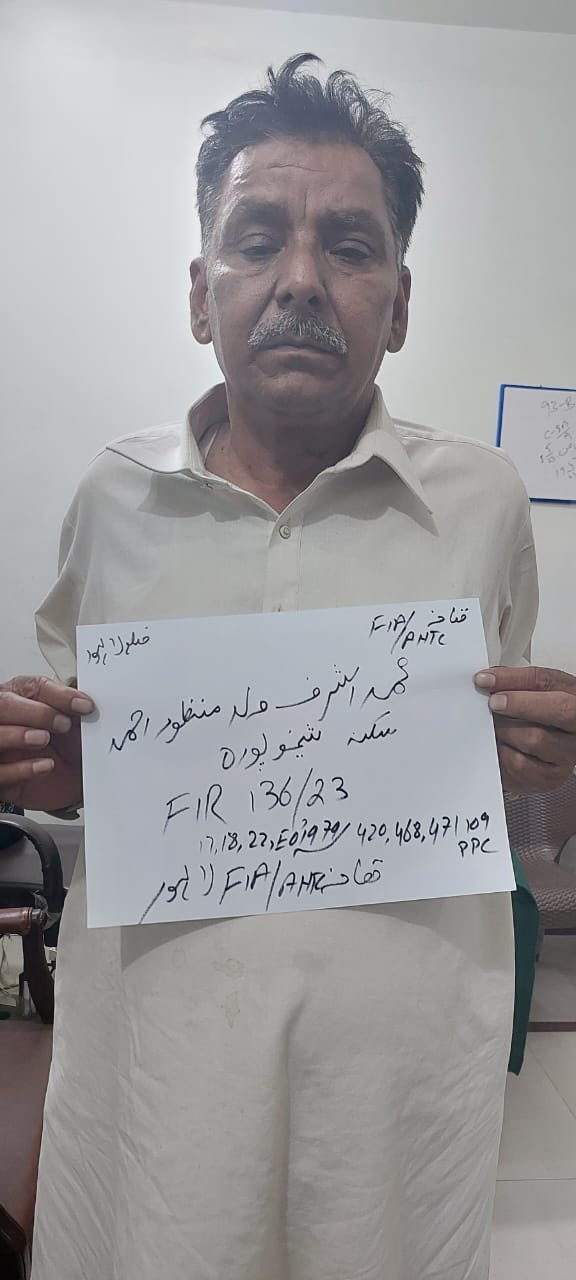 ضلع لاہور
تھانہ FIA/AHTC
محمد اشرف ولد منظور احمد
سکنہ شیخوپورہ
FIR 136/23
17,18,22,EO,1979/ 420,468,471,109
PPC
تھانہ FIA/AHTC لاہور
93-B